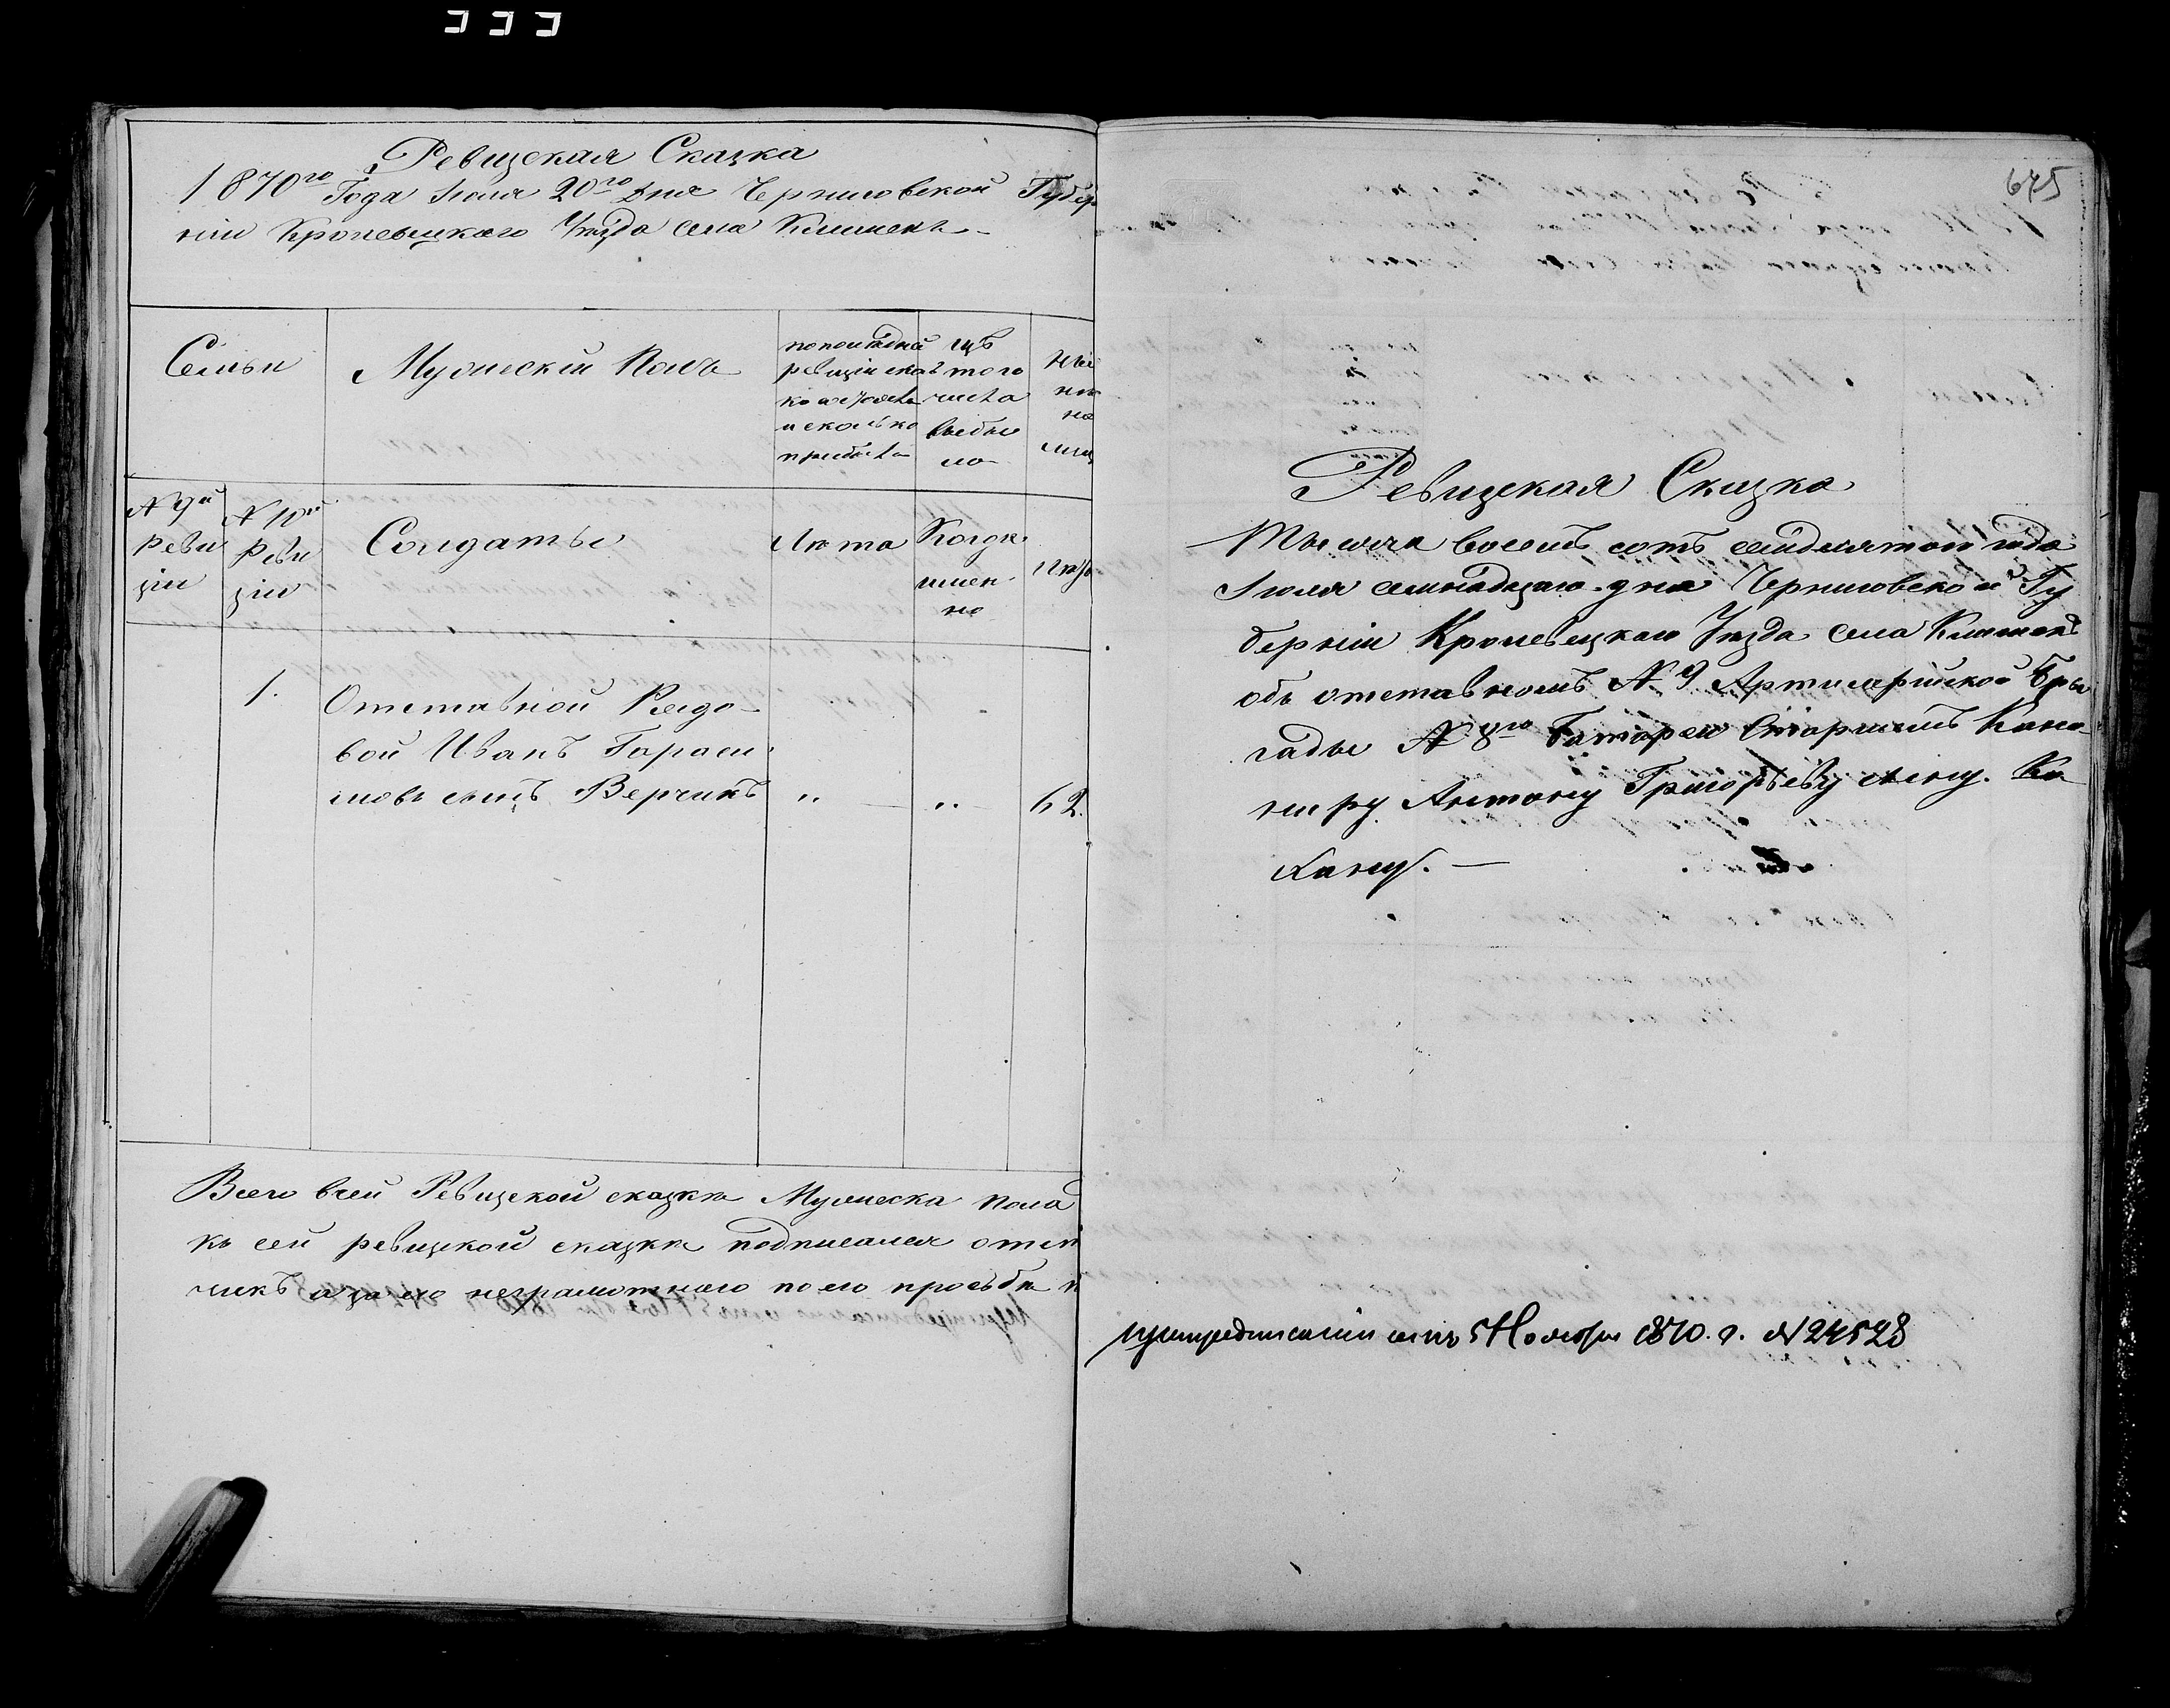 Ревизская Сказка
1870го Года Июля 20го Дня Черниговской Губер
ніи Кролевецкаго Уѣзда села Клишекъ
Семьи
Мужескій Полъ
по последней
ревизіи сколь
ко состояло
и сколько
прибыло
изъ
того
числа
выбы
ло
Ны
нѣ
на
лиц
№ 9й
Реви
зіи
№ 10й
Реви
зіи
Солдаты
Лѣта
Когда
имен
но
Лѣта
1.
Отставной Рядо-
вой Иванъ Гараси
мовъ сынъ Верчикъ
"
"
62.
Всего в сей Ревизской сказке Мужеска пола
къ сей ревизской сказке подписался
чикъ а за его неграмотнаго по его просьбѣ
675
Ревизская Сказка
Тысяча восемь сотъ семидесятого года
Июля семнадцатого дня Черниговской Гу
берніи Кролевецкаго Уѣзда села Клишекъ
объ отставномъ № 9 Артилерійской Бры
гады № 8го Батареи Старшемъ Кано-
ниру Антону Григорьеву сыну.
При предписаніи отъ 5 Ноября 1870. г. № 24528